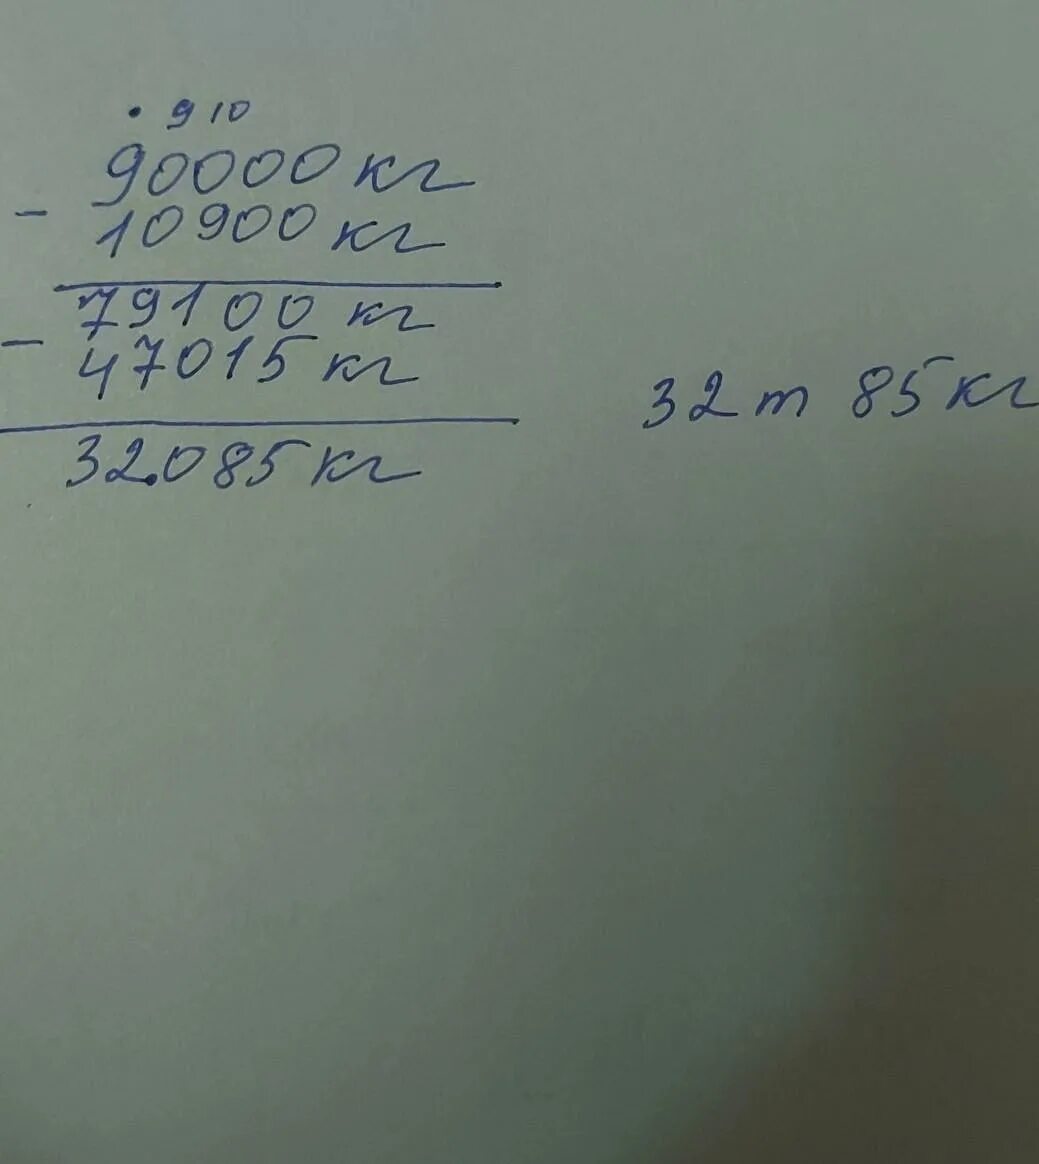 • 9 10
90000 кг
- 10900 кг
79100 кг
- 47015 кг
32.085 кг
32 т 85 кг